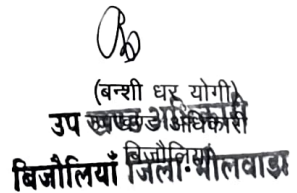 (बन्शी धर योगी)
उप खण्ड अधिकारी
बिजौलियाँ
बिजौलियाँ जिला-भीलवाडा